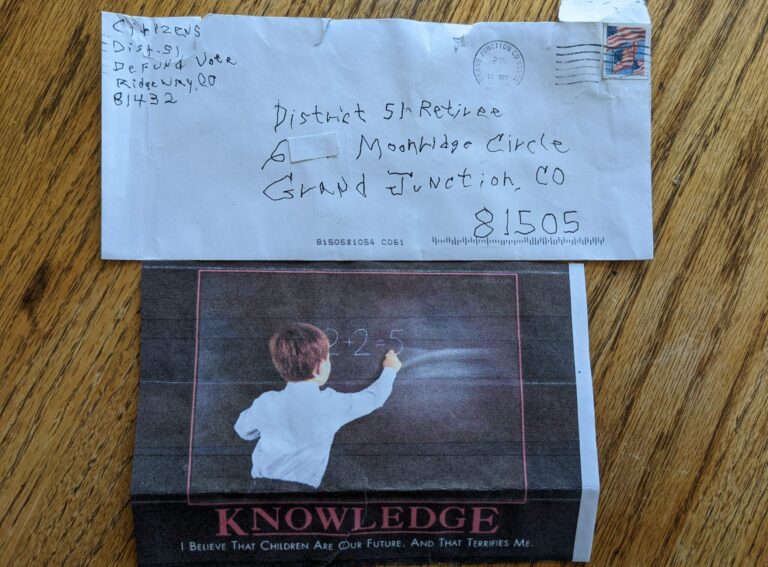 CITIZENS
Dist. 51
DeFUND Vote
RidgeWAy, CO
81432
GRAND JUNCTION CO
PM
District 51 Retiree
6 Moonridge Circle
Grand Junction, CO
81505
8150581054 C061
2+2=5
KNOWLEDGE
I BELIEVE THAT CHILDREN ARE OUR FUTURE. AND THAT TERRIFIES ME.